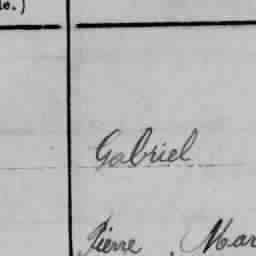 le.)
Gabriel
Pierre Mar